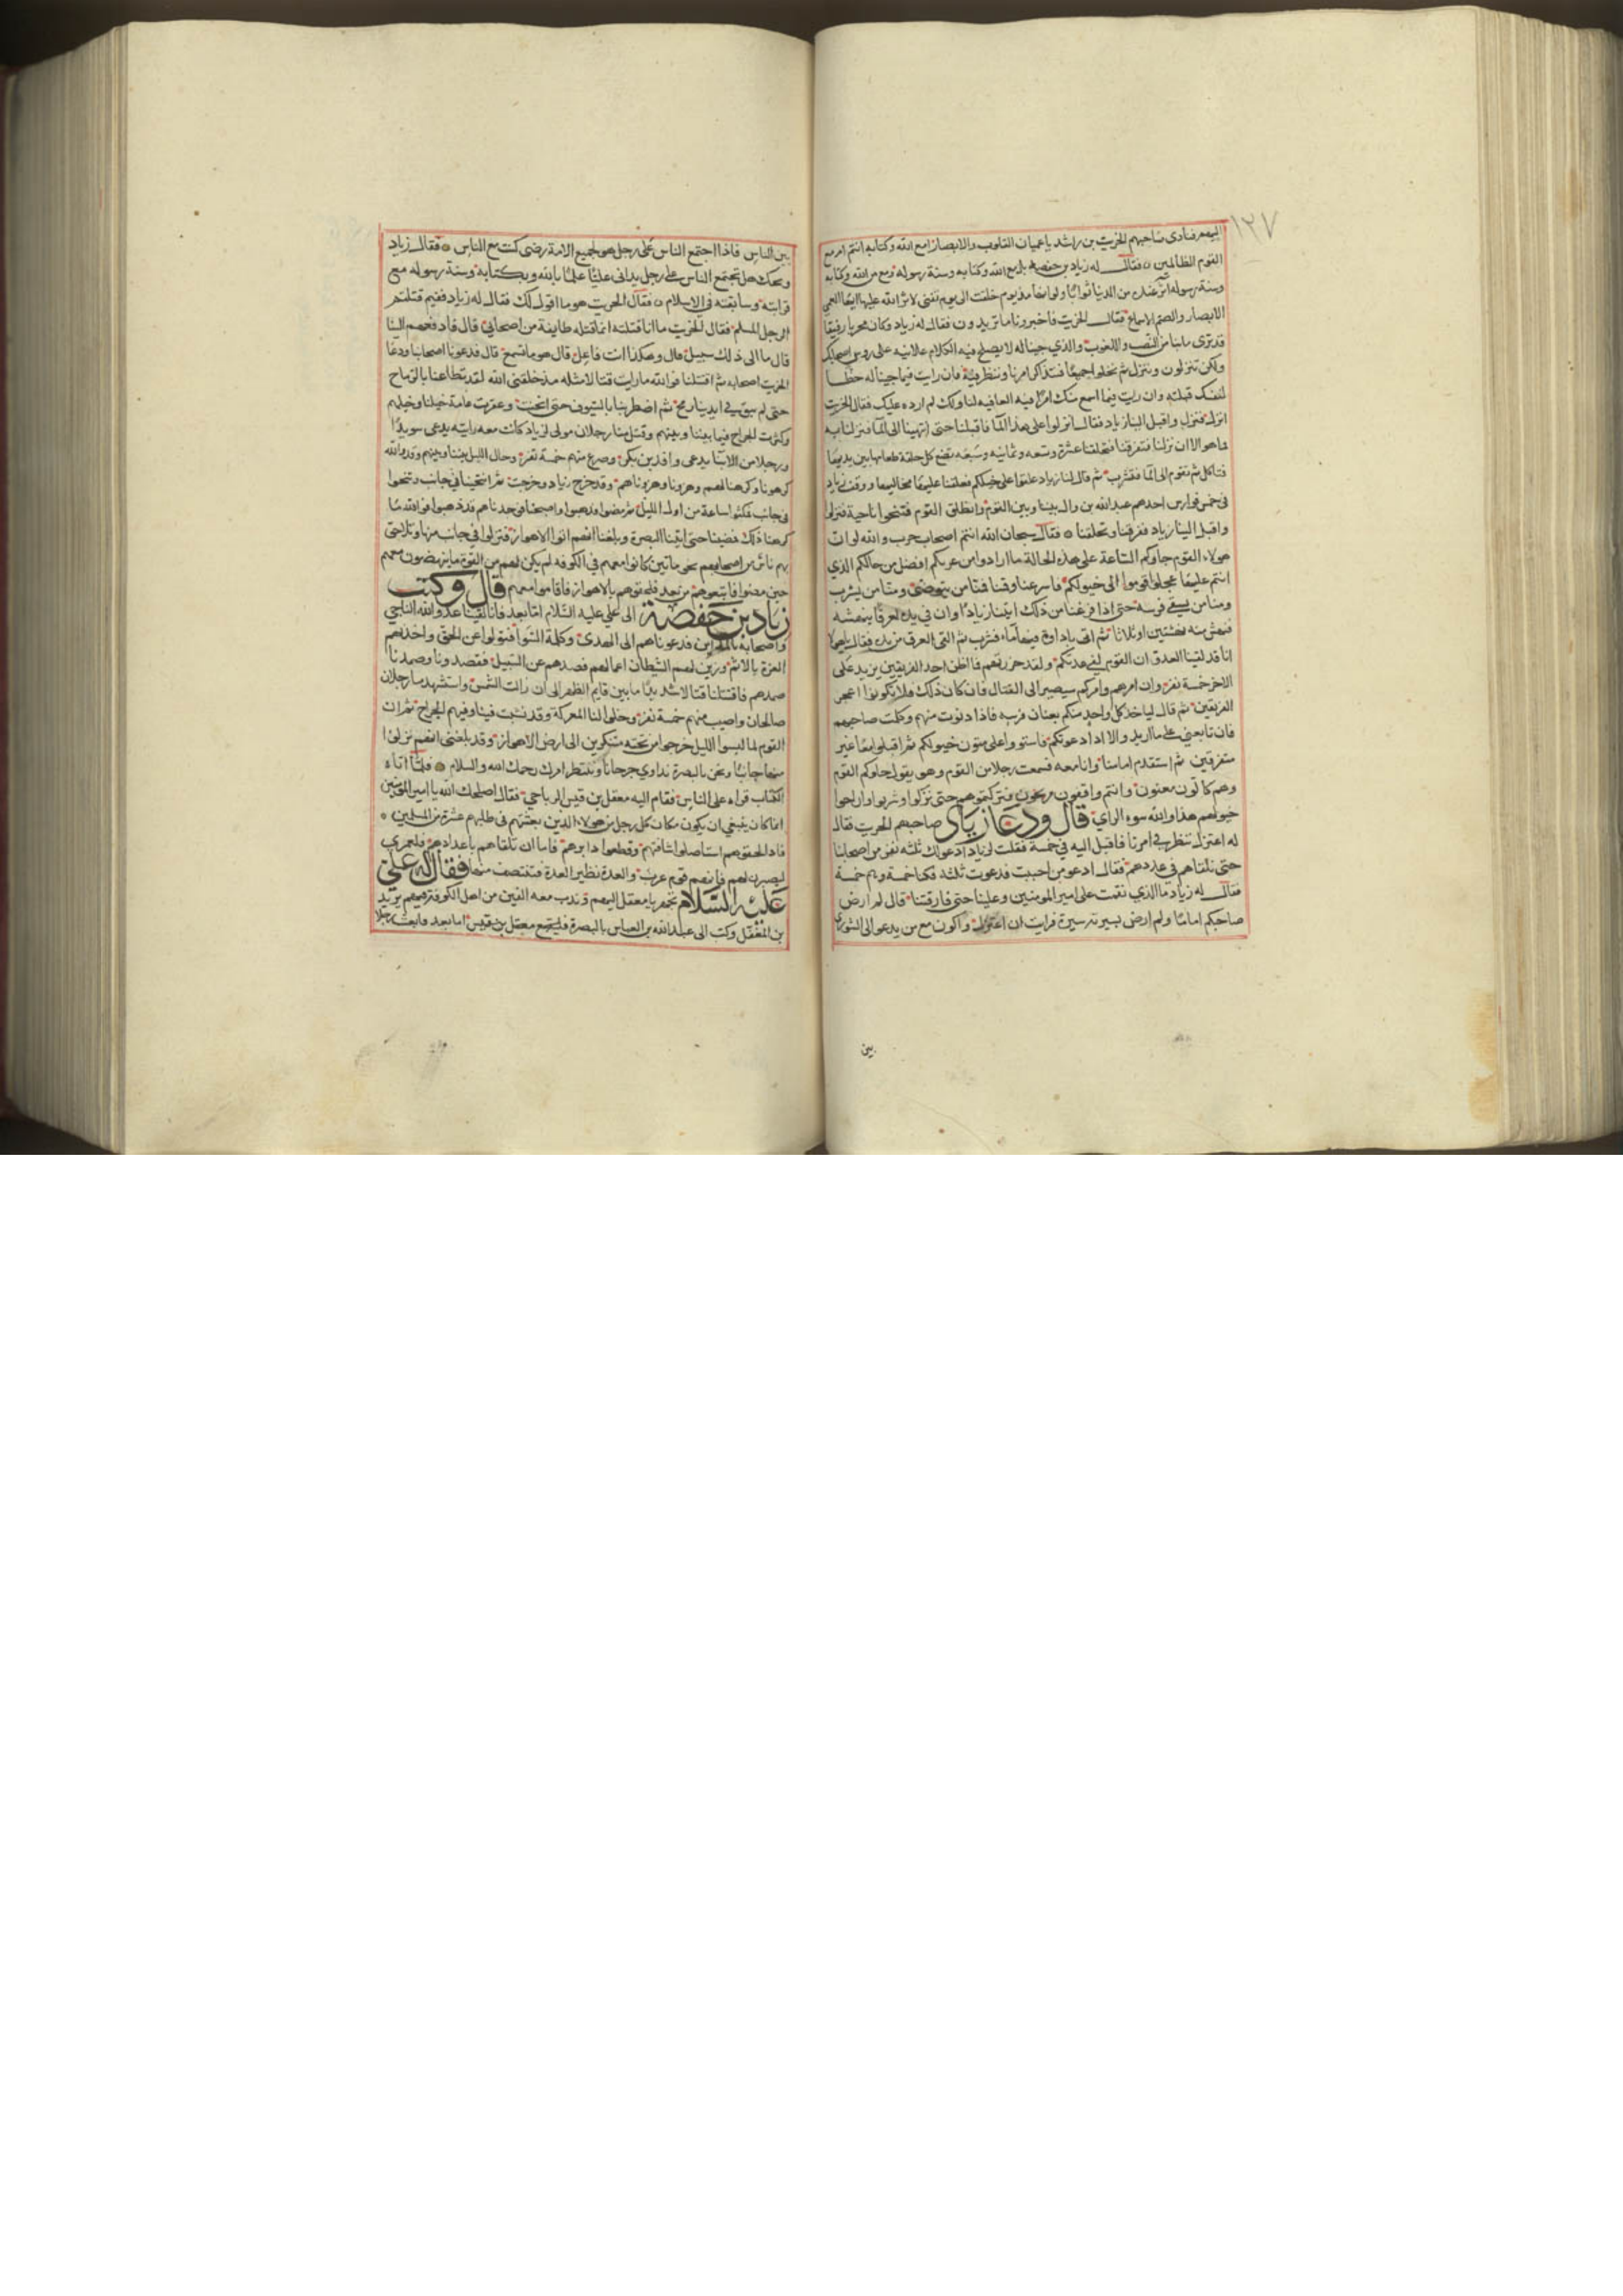 ١٢٧
اليهم فنادى صاحبهم الخريت بن راشد يا عميان القلوب والابصار امع الله وكتابه انتم ام مع
القوم الظالمين ه فقال له زياد بن حفصه بل مع الله وكتابه وسنة رسوله ومع من الله وكتابه
وسنة رسوله اثر عنده من الدنيا ثوابا ولو انها منذ يوم خلقت الى يوم تفنى لاثر الله عليها ايها العمي
الابصار والصم الاسماع فقال الخريت فاخبرونا ما تريدون فقال له زياد وكان مجربا رفيقا
قد ترى ما بنا من النصب واللغوب والذي جينا له لا يصلح فيه الكلام علانيه على روس اصحابك
ولكن تنزلون وننزل ثم نخلو جميعا فنتذاكر امرنا وننظر فيه فان رايت فيما جينا له حظا
لنفسك قبلته وان رايت فيما اسمع منك امرا فيه العافيه لنا ولك لم ارده عليك فقال الخريت
انزل فنزل واقبل الينا زياد فقال انزلوا على هذا الما فاقبلنا حتى انتهينا الى الما فنزلنا به
فما هو الا ان نزلنا فتفرقنا فتحلقنا عشرة وتسعه وثمانيه وسبعه تضع كل حلقة طعامها بين يديها
فتاكل ثم تقوم الى الما فتشرب ثم قال لنا زياد علقوا على خيلكم فعلقنا عليها مخاليها ووقف زياد
في خمس فوارس احدهم عبد الله بن وال بيننا وبين القوم وانطلق القوم فتنحوا ناحية فنزلوا
واقبل الينا زياد فلما راى تفرقنا وتحلقنا ه فقال سبحان الله انتم اصحاب حرب والله لو ان
هولاء القوم جاوكم الساعة على هذه الحالة ما ارادوا من غرتكم افضل من حالكم الذي
انتم عليها عجلوا قوموا الى خيولكم فاسرعنا وقمنا فمنا من يتوضى ومنا من يشرب
ومنا من يسقي فرسه حتى اذا فرغنا من ذلك اتينا زيادا وان في يده لعرقا ينهشه
فنهش منه نهشتين او ثلاثا ثم اتى باداوة فيها ماء فشرب ثم القى العرق من يده فقال يا هولا
انا قد لقينا العدو ان القوم لفي عدتكم ولقد حزرتهم فما اظن احد الفريقين يزيد على
الاخر خمسة نفر وان امرهم وامركم سيصير الى القتال فان كان ذلك فلا يكونوا اعجز
الفريقين ثم قال لياخذ كل واحد منكم بعنان فرسه فاذا دنوت منهم وكلمت صاحبهم
فان تابعني على ما اريد والا اذا دعوتكم فاستووا على متون خيولكم ثم اقبلوا معا غير
متفرقين ثم استقدم امامنا وانا معه فسمعت رجلا من القوم وهو يقول جاوكم القوم
وهم كالون معنون وانتم واقفون مريحون فتركتموهم حتى نزلوا وشربوا واراحوا
خيولهم هذا والله سوء الراي قال ودعا زياد صاحبهم الخريت فقال
له اعتزل ننظر في امرنا فاقبل اليه في خمسة فقلت لزياد ادعو لك ثلثه نفر من اصحابنا
حتى نلقاهم في عددهم فقال ادعو من احببت فدعوت ثلثه فكنا خمسة وهم خمسة
فقال له زياد ما الذي نقمت على امير المومنين وعلينا حتى فارقتنا قال لم ارض
صاحبكم اماما ولم ارض بسيرته سيرة فرايت ان اعتزل واكون مع من يدعو الى الشورى
بين
بين الناس فاذا اجتمع الناس على رجل هو لجميع الامة رضى كنت مع الناس ه فقال زياد
ويحك هل يجتمع الناس على رجل يداني عليا علما بالله وبكتابه وسنة رسوله مع
قرابته وسابقته في الاسلام ه فقال الخريت هو ما اقول لك فقال له زياد ففيم قتلتم
الرجل المسلم فقال الخريت ما انا قتلته انما قتله طايفة من اصحابي قال فادفعهم الينا
قال ما الى ذلك سبيل قال وهكذا انت فاعل قال هو ما تسمع قال فدعونا اصحابنا ودعا
الخريت اصحابه ثم اقتتلنا فوالله ما رايت قتالا مثله مذ خلقني الله لقد تطاعنا بالرماح
حتى لم يبق في ايدينا رمح ثم اضطربنا بالسيوف حتى انحنت وعقرت عامة خيلنا وخيلهم
وكثرت الجراح فيما بيننا وبينهم وقتل منا رجلان مولى لزياد كانت معه رايته يدعى سويدا
ورجلا من الابنا يدعى واقد بن بكر وصرع منهم خمسة نفر وحال الليل بيننا وبينهم وقد والله
كرهونا وكرهناهم وهزونا وهزوناهم وقد جرح زياد وجرحت ثم انتحينا في جانب وتنحوا
في جانب فمكثوا ساعة من اول الليل ثم مضوا فذهبوا واصبحنا فوجدناهم قد ذهبوا فوالله ما
كرهنا ذلك فمضينا حتى اتينا البصرة وبلغنا انهم اتوا الاهواز فنزلوا في جانب منها وتلاحق
بهم ناس من اصحابهم نحو ماتين كانوا معهم في الكوفه لم يكن لهم من القوة ما ينهضون معهم
حين مضوا فاتبعوهم من بعد فلحقوهم بالاهواز فاقاموا معهم قال وكتب
زياد بن حفصة الى علي عليه السلام اما بعد فانا لقينا عدو الله الناجي
واصحابه بالمداين فدعوناهم الى الهدى وكلمة السوا فتولوا عن الحق واخذتهم
العزة بالاثم وزين لهم الشيطان اعمالهم فصدهم عن السبيل فقصدونا وصمدنا
صمدهم فاقتتلنا قتالا شديدا ما بين قايم الظهر الى ان زالت الشمس واستشهد منا رجلان
صالحان واصيب منهم خمسة نفر وخلوا لنا المعركة وقد نشبت فينا وفيهم الجراح ثم ان
القوم لما لبسوا الليل خرجوا من تحته متنكرين الى ارض الاهواز وقد بلغني انهم نزلوا
منها جانبا ونحن بالبصرة نداوي جرحانا وننتظر امرك رحمك الله والسلام ه فلما اتاه
الكتاب قراه على الناس فقام اليه معقل بن قيس الرياحي فقال اصلحك الله يا امير المومنين
انما كان ينبغي ان يكون مكان كل رجل من هولاء الذين بعثتهم في طلبهم عشرة من المسلمين
فاذا لحقوهم استاصلوا شافتهم وقطعوا دابرهم فاما ان تلقاهم باعدادهم فلعمري
ليصبرن لهم فانهم قوم عرب والعدة نظير العدة فتنتصف منها فقال له علي
عليه السلام تجهز يا معقل اليهم وندب معه الفين من اهل الكوفة فيهم يزيد
بن المغفل وكتب الى عبد الله بن العباس بالبصرة فليتبع معقل بن قيس اما بعد فابعث رجلا